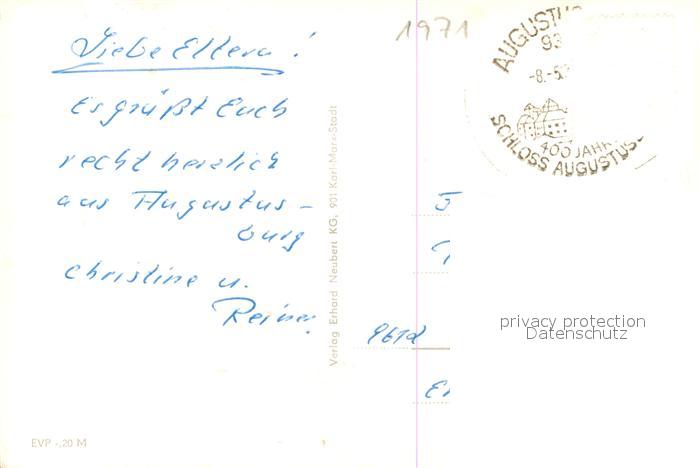 Liebe Eltern!
Es grüßt Euch
recht herzlich
aus Augustus-
burg
Christine u.
Reiner.
EVP -,20 M
Verlag Erhard Neubert KG, 901 Karl-Marx-Stadt
1971
AUGUSTU
93
-8.-5.
400 JAHR
SCHLOSS AUGUSTUS
privacy protection
Datenschutz